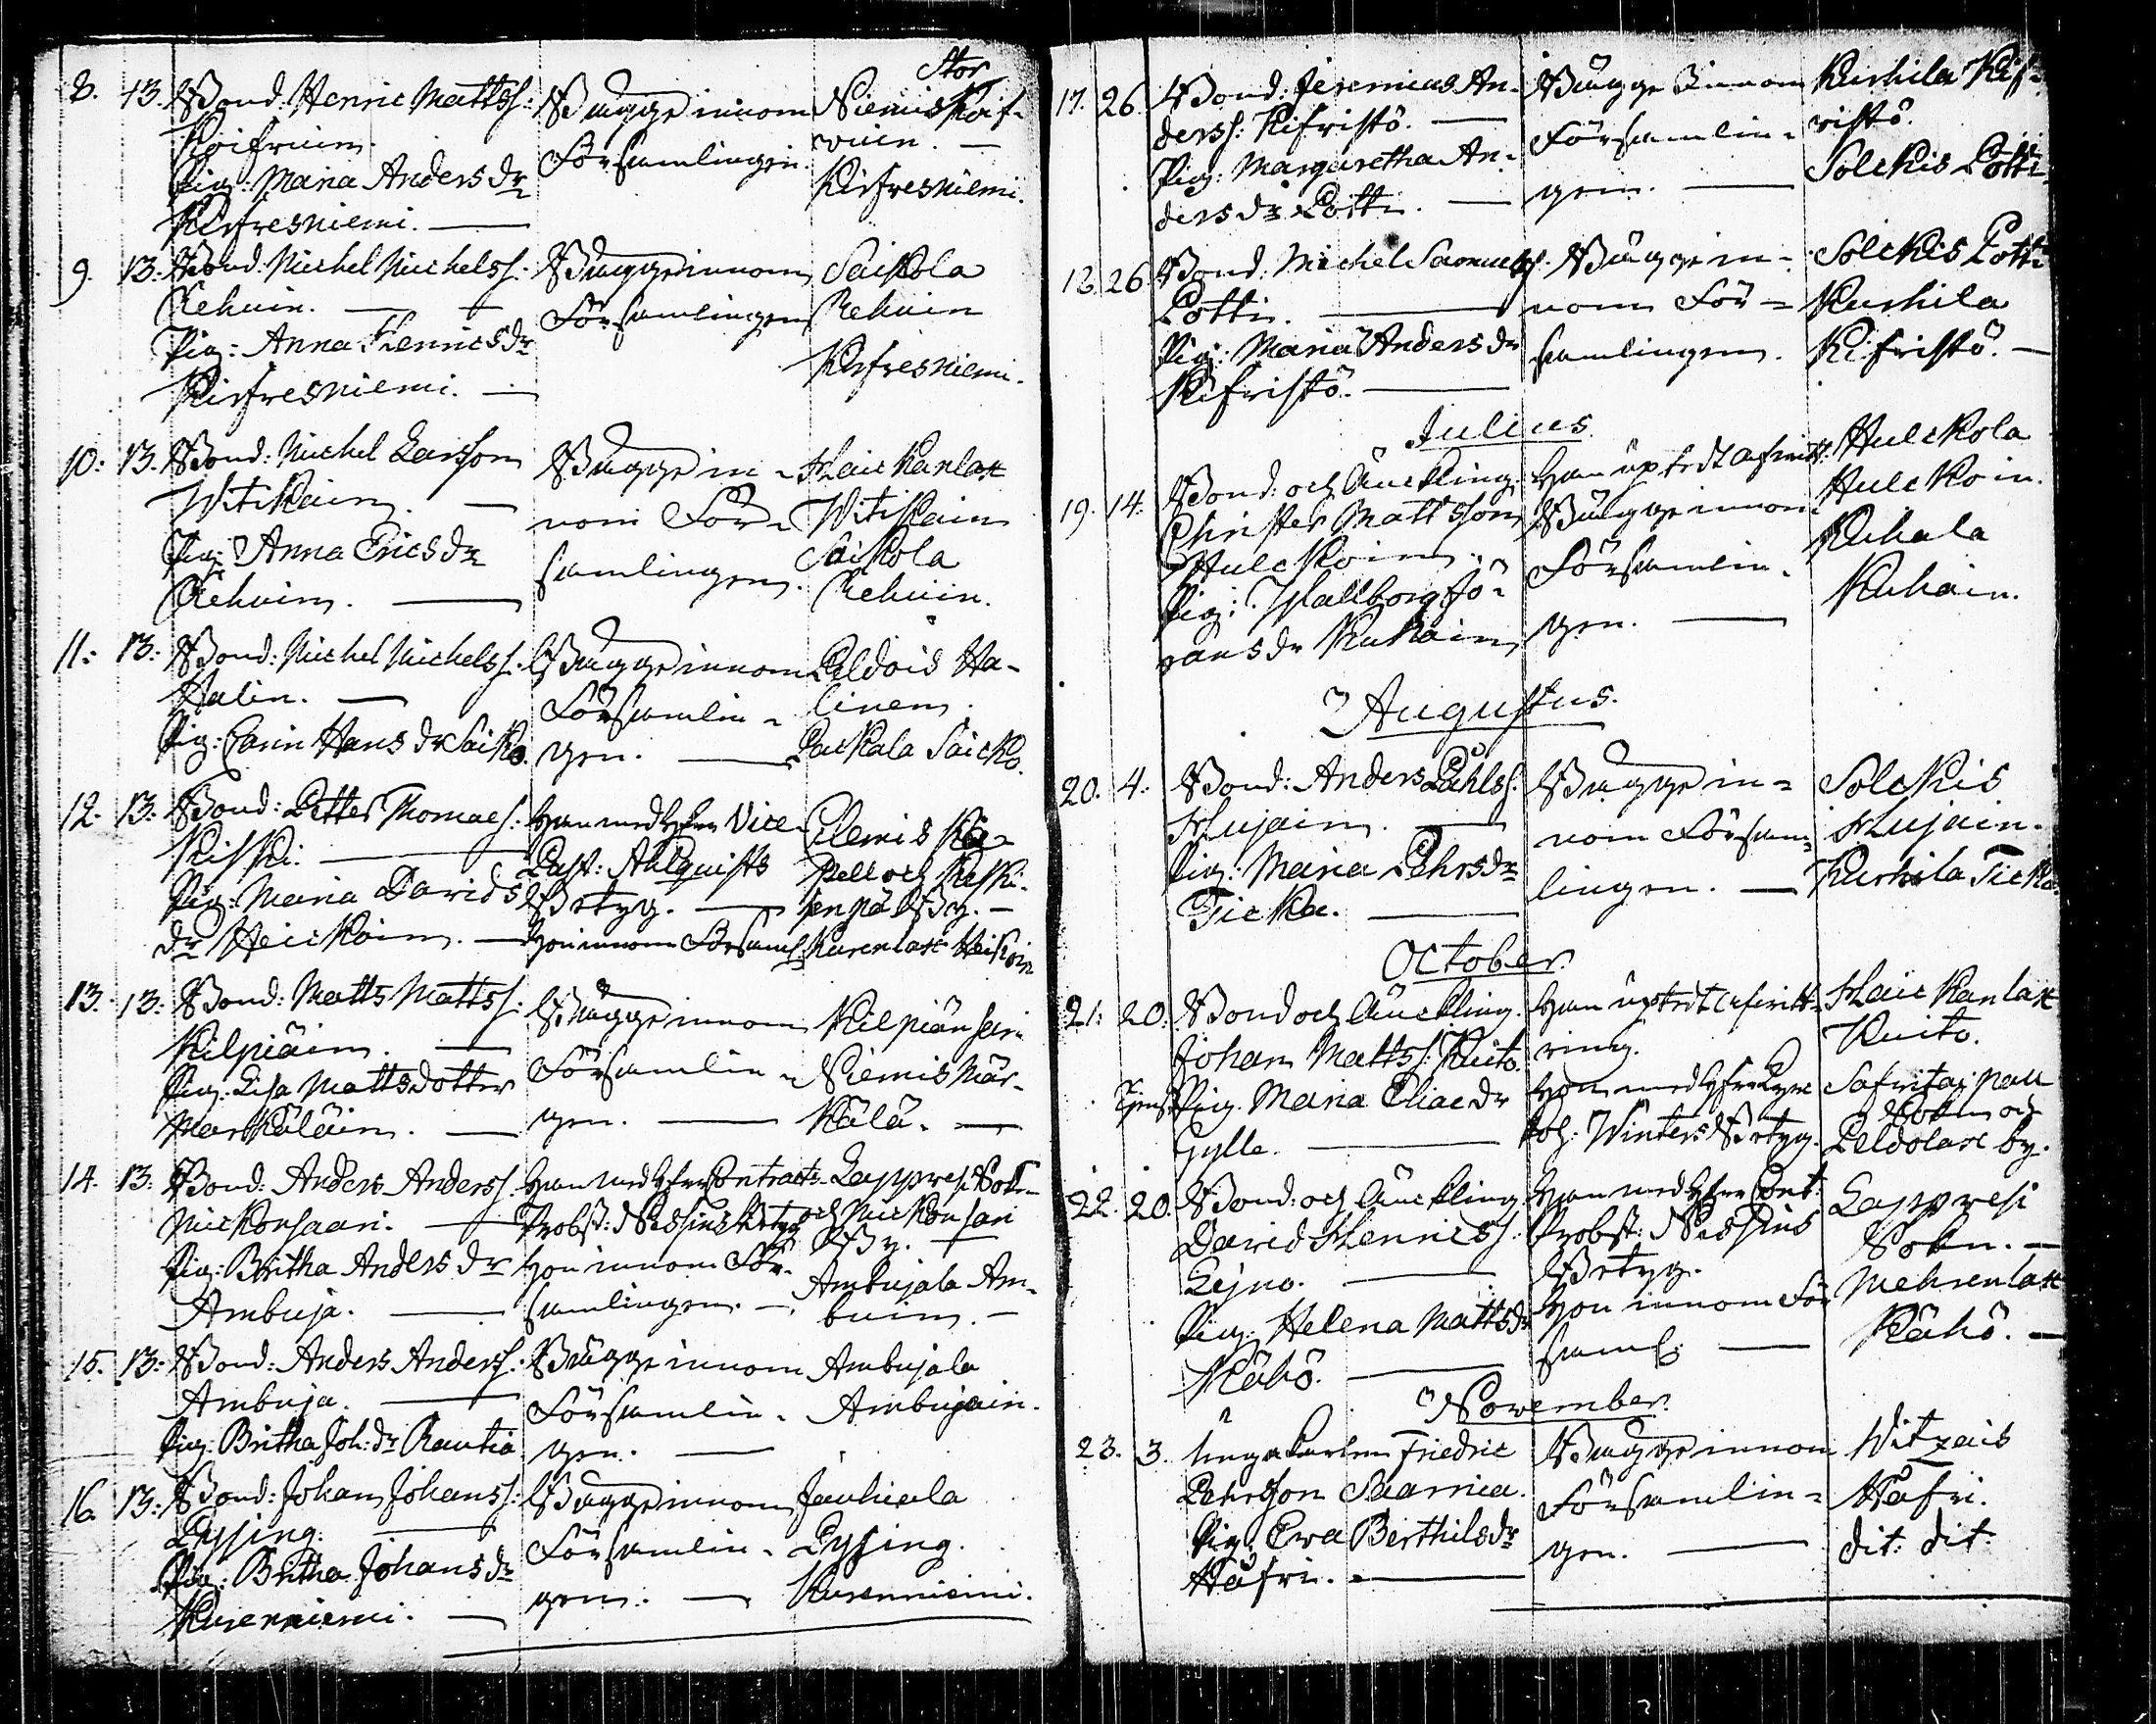 8. 13. Bond: Henric Mattss:
Koifvuin.
Pig: Maria Anders dr
Kirfvesniemi.
Bägge innom
Församlingen.
Stor
Niemis Koif-
vuin.
Kirfvesniemi.
9. 13. Bond: Michel Michelss:
Rehuin.
Pig: Anna Henrics dr
Kirfvesniemi.
Bägge innom
Församlingen
Saikola
Rehuin
Kirfvesniemi.
10. 13. Bond: Michel Larsson
Witikain.
Pig: Anna Erics dr
Rehuin.
Bägge in-
nom För-
samlingen.
Haickanlax
Witikain
Saikola
Rehuin.
11. 13. Bond: Michel Michelss:
Halin.
Pig: Carin Hans dr Saiko.
Bägge innom
Församlin-
gen.
Peldois Ha-
linen.
Packala Saicko.
12. 13. Bond: Petter Thomaes:
Kiski.
Pig: Maria Davids
dr Heickoin.
Han med Hr Vice
Past: Ahlquists
Betyg.
Hon innom Församl:
Clemis Ka-
pell och Kiski-
senpä By.
Kurenlax Heikoin
13. 13. Bond: Matts Mattss:
Kilpiäin.
Pig: Lisa Mattsdotter
Markäläin.
Bägge innom
Församlin-
gen.
Kilpiänsari
Niemis Mar-
kälä.
14. 13. Bond: Anders Anderss:
Mickonsaari.
Pig: Britha Anders dr
Ambuja.
Han med Hr Contracts
Probst: Nessius Betyg
Hon innom För-
samlingen.
Lappvesi Sokn
och Mickonsari
By.
Ambujala Am-
buin.
15. 13. Bond: Anders Anderss:
Ambuja.
Pig: Britha Joh: dr Rautia
Bägge innom
Församlin-
gen.
Ambujala
Ambujain.
16. 13. Bond: Johan Johanss:
Pysing.
Pig: Britha Johans dr
Kurenniemi.
Bägge innom
Församlin-
gen.
Jauhiala
Pysing.
Kurenniemi.
17. 26. Bond: Jeremias An-
derss: Kifristö.
Pig: Margaretha An-
ders dr Potti.
Bägge innom
Församlin-
gen.
Kurkila Kif-
ristö.
Solckis Potti
18. 26. Bond: Michel Samuelss:
Potti.
Pig: Maria Anders dr
Kifristö.
Bägge in-
nom För-
samlingen.
Solckis Potti
Kurkila
Kifristö.
Julius.
19. 14. Bond: och Änckling
Christer Mattsson
Hulckoin.
Pig: Wallborg Jö-
rans dr Kukoin
Bägge innom
Församlin-
gen.
Hulckola
Hulckoin.
Kukala
Kukoin.
Augustus.
20. 4. Bond: Anders Påhlss:
Hujain.
Pig: Maria Pehrs dr
Ticka.
Bägge in-
nom Försam-
lingen.
Solckis
Hujain.
Kurkila Ticka.
October.
21. 20. Bond och Änckling
Johan Mattss: Kuito.
Pig. Maria Eliae dr
Gylle.
Joh: Winters Betyg.
Haickanlax
Kuito.
Peldolax by.
22. 20. Bond: och Änckling
David Henricss:
Lejno.
Pig. Helena Matts dr
Kähö.
Han med Hr Cont:
Probst: Nessius
Betyg.
Hon innom För
saml:
Lappvesi
Sokn.
Mehrenlax
Kähö.
November.
23. 3. Unga Karlen Friedric
Pehrsson Saarnia.
Pig. Ewa Berthils dr
Häfri.
Bägge innom
Församlin-
gen.
Witzais
Häfri.
dit: dit: